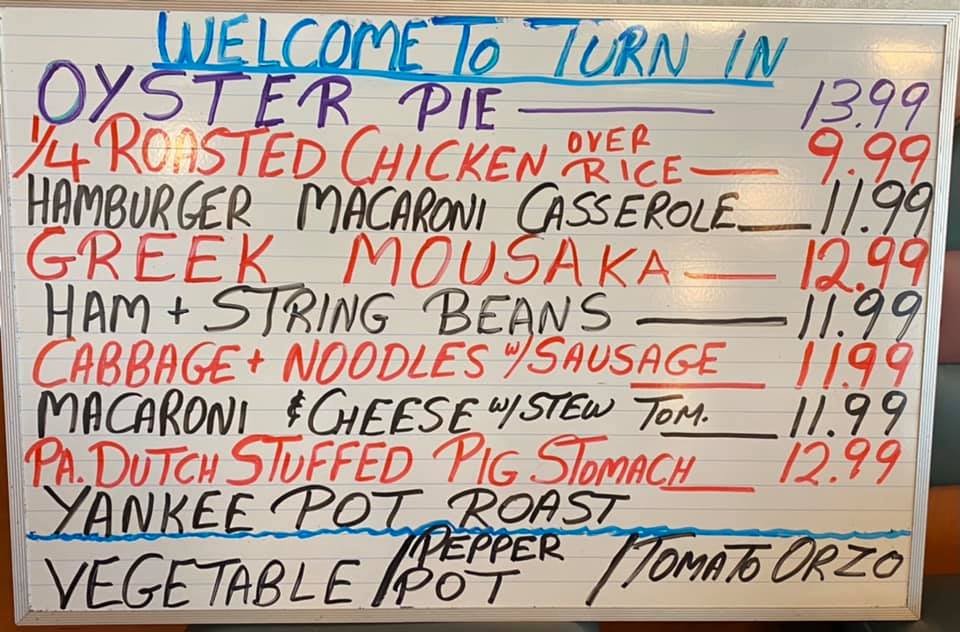 WELCOME TO TURN IN
OYSTER PIE 13.99
1/4 ROASTED CHICKEN OVER RICE 9.99
HAMBURGER MACARONI CASSEROLE 11.99
GREEK MOUSAKA 12.99
HAM + STRING BEANS 11.99
CABBAGE + NOODLES w/ SAUSAGE 11.99
MACARONI & CHEESE w/ STEW TOM. 11.99
PA. DUTCH STUFFED PIG STOMACH 12.99
YANKEE POT ROAST
VEGETABLE / PEPPER POT / TOMATO ORZO